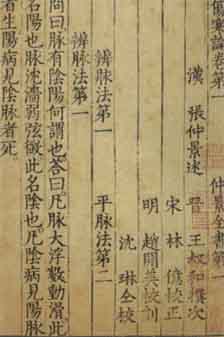 傷寒論卷第一 仲景全書第一
漢 張仲景述 晉 王叔和撰次
宋 林 億校正
明 趙開美校刻
沈 琳仝校
辨脉法第一 平脉法第二
辨脉法第一
問曰脉有陰陽何謂也答曰凡脉大浮數動滑此
名陽也脉沈濇弱弦微此名陰也凡陰病見陽脉
者生陽病見陰脉者死